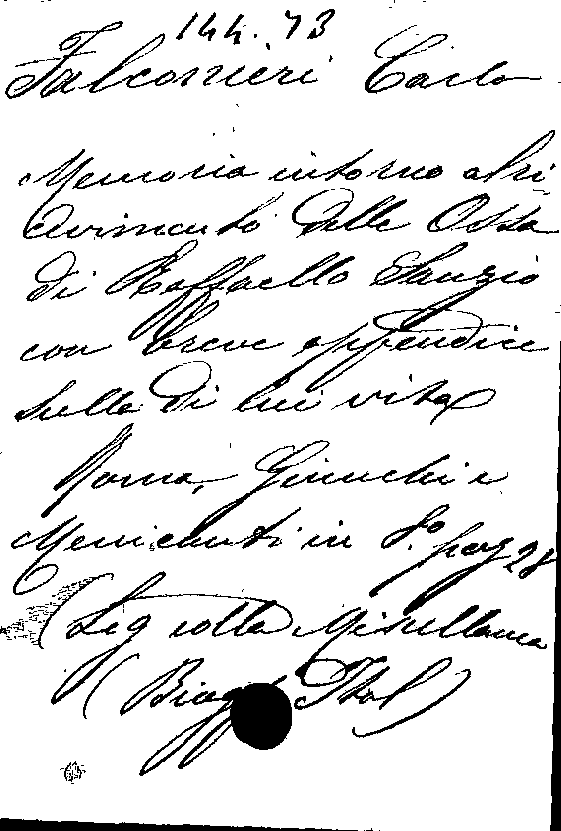 144.73
Falconieri Carlo
Memoria intorno al ri
nvimento delle Ossa
di Raffaello Sanzio
con breve appendice
sulla di lui vita
Roma, Giunchi e
Menicanti in 8º pag 28
(Leg colla Miscellanea
(Biog Ital)